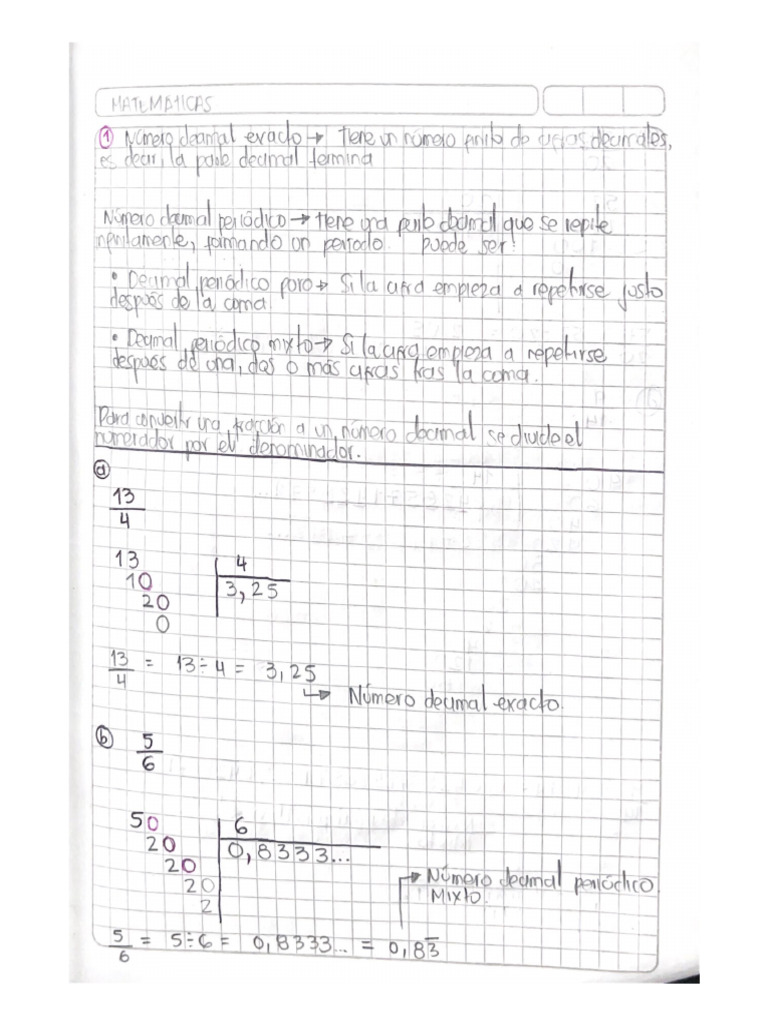 MATEMÁTICAS
① Número decimal exacto → tiene un número finito de cifras decimales,
es decir, la parte decimal termina
Número decimal periódico → tiene una parte decimal que se repite
infinitamente, formando un periodo. puede ser:
• Decimal periódico puro → Si la cifra empieza a repetirse justo
después de la coma.
• Decimal periódico mixto → Si la cifra empieza a repetirse
después de una, dos o más cifras tras la coma.
Para convertir una fracción a un número decimal se divide el
numerador por el denominador.
ⓐ
13
4
13 4
10 3,25
20
0
13/4 = 13÷4 = 3,25
↳ Número decimal exacto.
ⓑ 5
6
50 6
20 0,8333...
20
20
2
→ Número decimal periódico
Mixto.
5/6 = 5÷6 = 0,8333... = 0,83̅